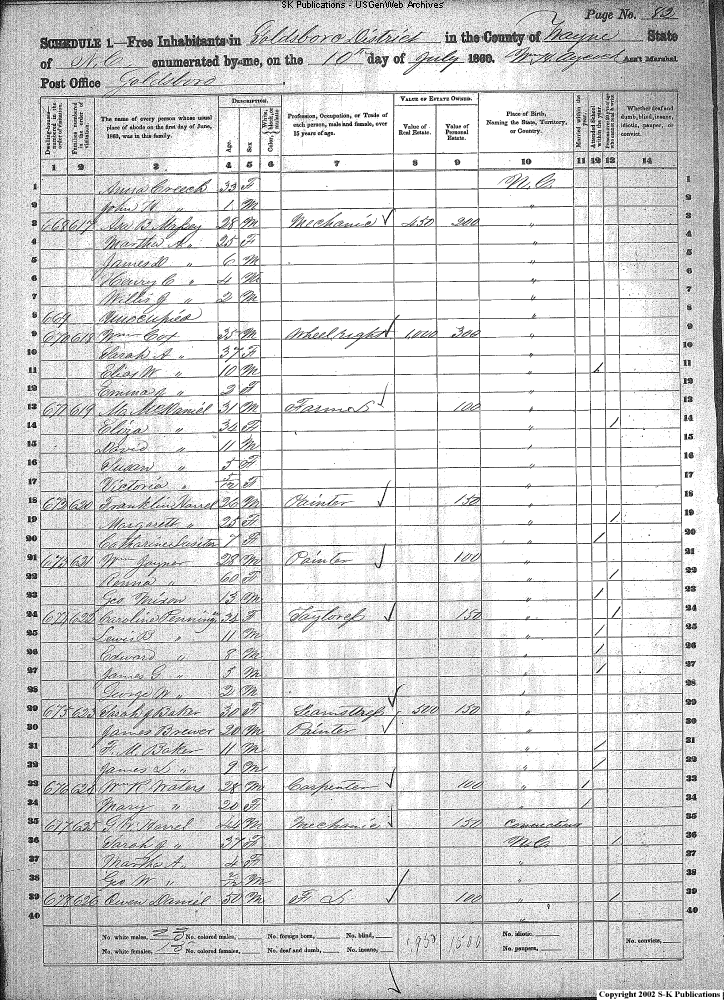 SK Publications - USGenWeb Archives
Page No. 82
SCHEDULE 1.—Free Inhabitants in Goldsboro District in the County of Wayne State
of N.C. enumerated by me, on the 10th day of July 1860. Ass't Marshal
Post Office Goldsboro
DESCRIPTION. VALUE OF ESTATE OWNED.
Dwelling-houses—numbered in the order of visitation. Families numbered in the order of visitation. The name of every person whose usual place of abode on the first day of June, 1860, was in this family. Age. Sex Color, White, black, or mulatto Profession, Occupation, or Trade of each person, male and female, over 15 years of age. Value of Real Estate. Value of Personal Estate. Place of Birth, Naming the State, Territory, or Country. Married within the year. Attended School within the year. Whether deaf and dumb, blind, insane, idiotic, pauper, or convict.
1 2 3 4 5 6 7 8 9 10 11 12 13 14
1 Creech 33 F N.C. 1
2 John " 1 M " 2
3 668 617 B 28 M Mechanic 450 200 " 3
4 Martha A. 25 F " 4
5 James " 6 M " 5
6 Henry C " 4 M " 6
7 Willis G " 2 M " 7
8 669 Unoccupied 8
9 670 618 Wm Cox 35 M Wheelright 1,000 300 " 9
10 Sarah A " 37 F " 10
11 Elias W " 10 M " 1 11
12 Emma " 2 F " 12
13 671 619 McDaniel 31 M Farmer 100 " 13
14 Eliza " 30 F " / 14
15 David " 11 M " 15
16 Susan " 5 F " 16
17 Victoria " F " 17
18 672 620 Franklin Harrel 26 M Painter 150 " 18
19 Margarett " 25 F " / 19
20 Catharine 7 F " / 20
21 673 621 Wm Joyner 28 M Painter 100 " 21
22 " 60 F " / 22
23 Geo Mixon 13 M " / 23
24 674 622 Caroline 34 F Tayloress 150 " / 24
25 Lewis B " 11 M " / 25
26 Edward " 8 M " / 26
27 James G " 5 M " / 27
28 George W " 2 M " 28
29 675 623 Sarah J Baker 30 F Seamstress 500 150 " 29
30 James Brewer 20 M Painter " 30
31 Baker 11 M " / 31
32 James L " 9 M " / 32
33 676 624 W R Waters 28 M Carpenter 100 " / 33
34 Mary " 20 F " / 34
35 677 625 Harrel 44 M Mechanic 150 Connecticut 35
36 Sarah J " 37 F N.C. / 36
37 Martha A. 4 F " 37
38 Geo W " M " 38
39 678 626 Owen Daniel 50 M 100 " / 39
40 " 40
No. white males, 23 No. colored males, No. foreign born, No. blind, 1950 1500 No. idiotic, No. convicts,
No. white females, No. colored females, No. deaf and dumb, No. insane, No. paupers,
Copyright 2002 S-K Publications